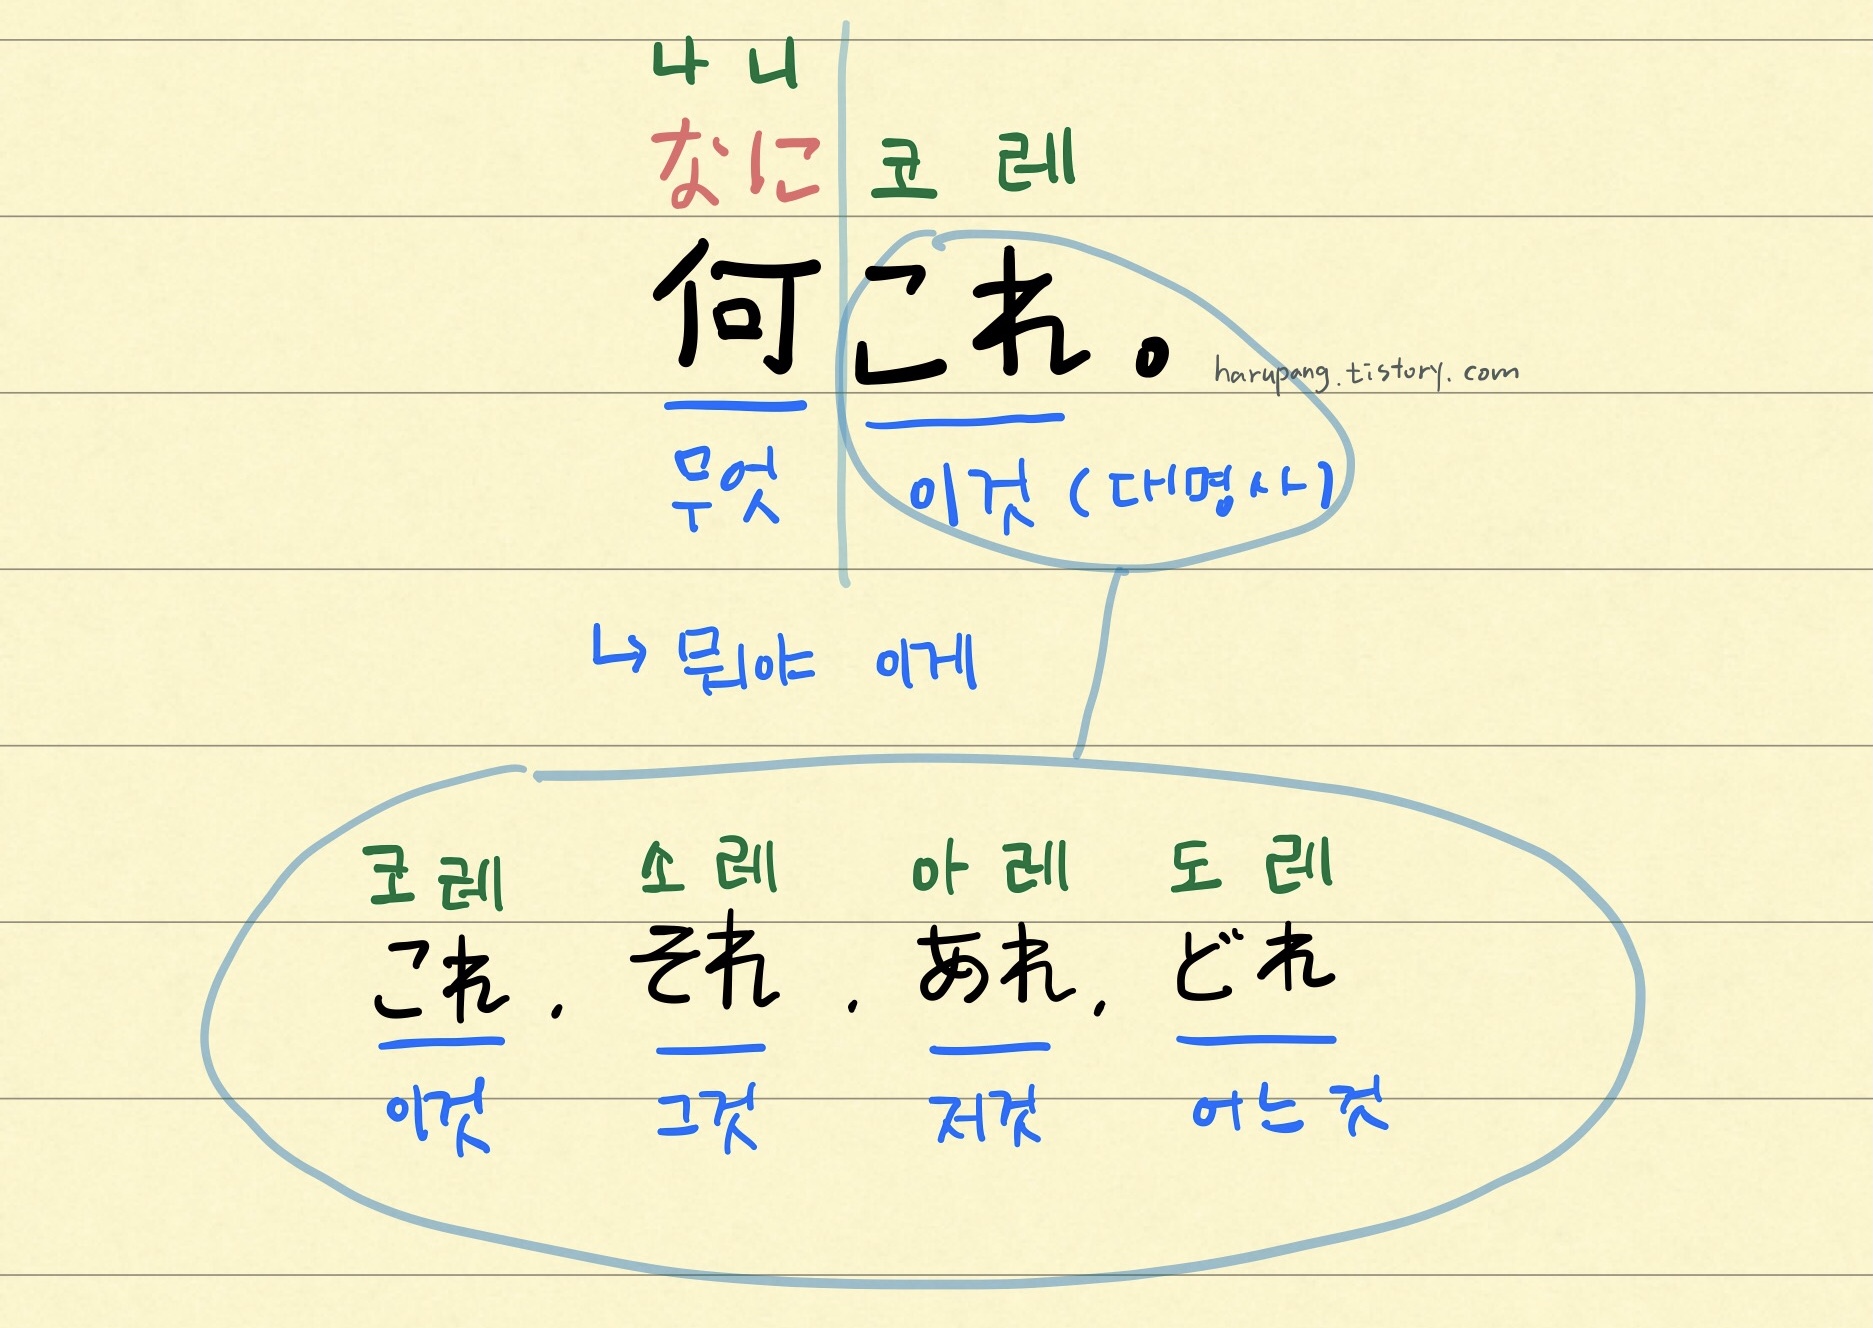 나니
なに 코레
何これ。
harupang.tistory.com
무엇 이것 (대명사)
↳ 뭐야 이게
코레 소레 아레 도레
これ, それ, あれ, どれ
이것 그것 저것 어느것